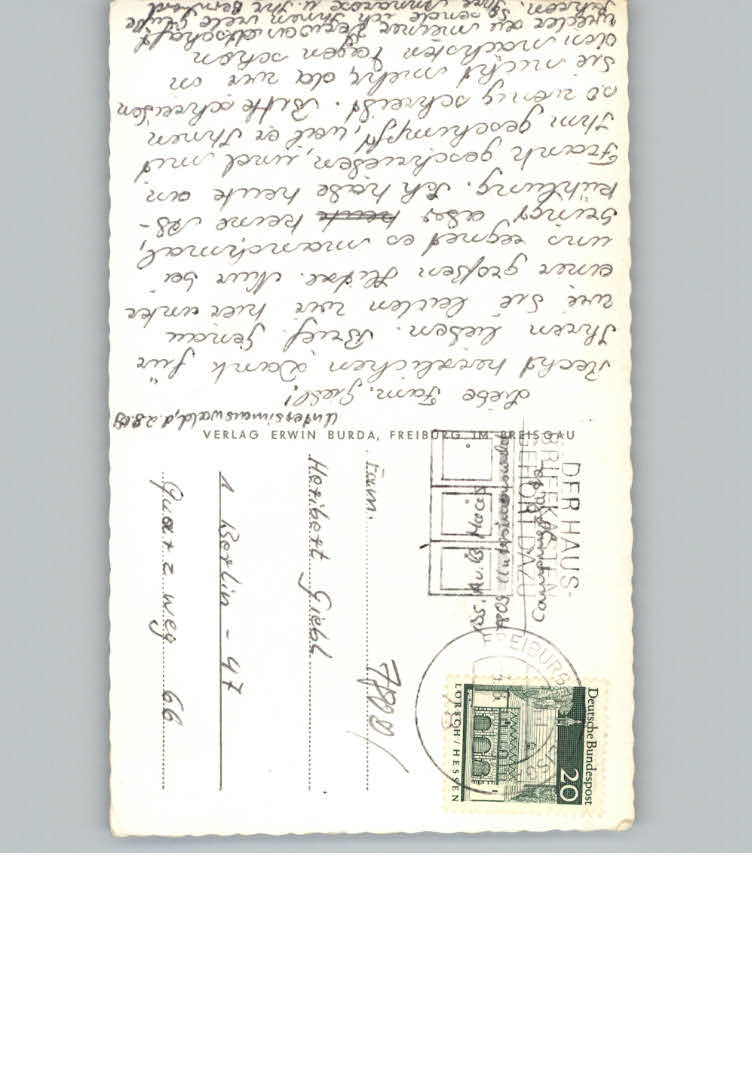 Untersimonswald, d. 2.8.69
Liebe Fam. Giebl!
Recht herzlichen Dank für
Ihren lieben Brief. Genau
wie Sie leiden wir hier unter
einer großen Hitze. Nur bei
uns regnet es manchmal,
bringt aber heute keine Ab-
kühlung. Ich habe heute an
Frank geschrieben, und mit
ihm geschimpft, weil er Ihnen
so wenig schreibt. Bitte schreiben
Sie nicht mehr, da wir in
den nächsten Tagen schon
wieder zu meiner Verwandtschaft
fahren. So sende ich Ihnen viele Grüße
Ihre Annarose u. Ihr Bernhard
VERLAG ERWIN BURDA, FREIBURG IM BREISGAU
DER HAUS-
BRIEFKASTEN
GEHÖRT DAZU
FREIBURG
BREISG
78
Deutsche Bundespost
20
LORSCH/HESSEN
Abs.
7809 Untersimonswald
Fam.
Heribert Giebl
1 Berlin - 47
Quarzweg 66